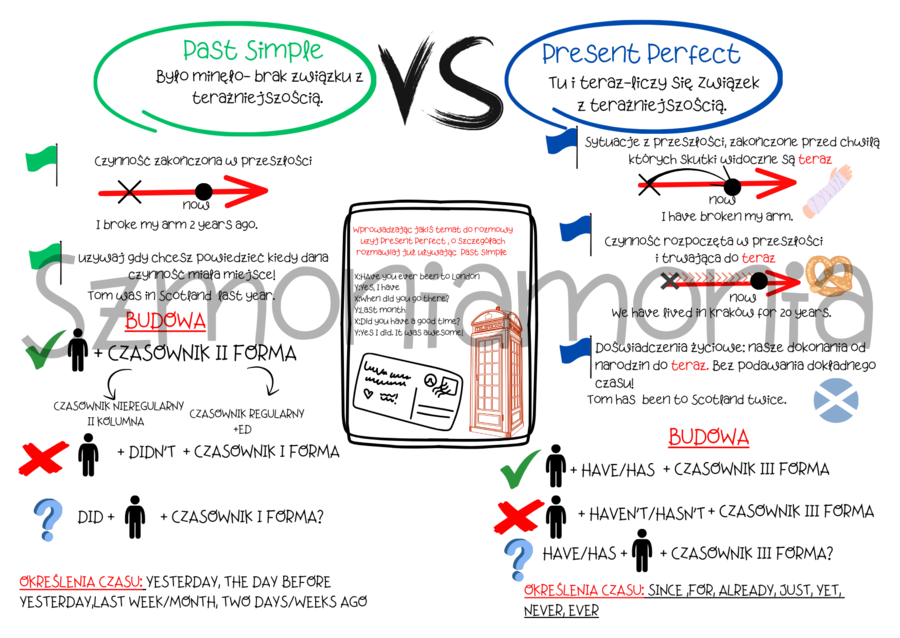 Past Simple
Było minęło- brak związku z
teraźniejszością.
VS
Present Perfect
Tu i teraz-liczy się związek
z teraźniejszością.
Czynność zakończona w przeszłości
now
I broke my arm 2 years ago.
używaj gdy chcesz powiedzieć kiedy dana
czynność miała miejsce!
Tom was in Scotland last year.
BUDOWA
+ CZASOWNIK II FORMA
CZASOWNIK NIEREGULARNY
II KOLUMNA
CZASOWNIK REGULARNY
+ED
+ DIDN'T + CZASOWNIK I FORMA
DID + + CZASOWNIK I FORMA?
OKREŚLENIA CZASU: YESTERDAY, THE DAY BEFORE
YESTERDAY,LAST WEEK/MONTH, TWO DAYS/WEEKS AGO
Wprowadzając jakiś temat do rozmowy
użyj Present Perfect , o szczegółach
rozmawiaj już używając Past Simple
X:HAve you ever been to London
Y:Yes, I have
X:When did you go there?
Y:Last month
X:Did you have a good time?
Y:Yes I did. It was awesome!
Sytuacje z przeszłości, zakończone przed chwilą
których skutki widoczne są teraz
now
I have broken my arm.
Czynność rozpoczęta w przeszłości
i trwająca do teraz
now
We have lived in Kraków for 20 years.
Doświadczenia życiowe: nasze dokonania od
narodzin do teraz. Bez podawania dokładnego
czasu!
Tom has been to Scotland twice.
BUDOWA
+ HAVE/HAS + CZASOWNIK III FORMA
+ HAVEN'T/HASN'T + CZASOWNIK III FORMA
HAVE/HAS + + CZASOWNIK III FORMA?
OKREŚLENIA CZASU: SINCE ,FOR, ALREADY, JUST, YET,
NEVER, EVER
Szmoniamonia